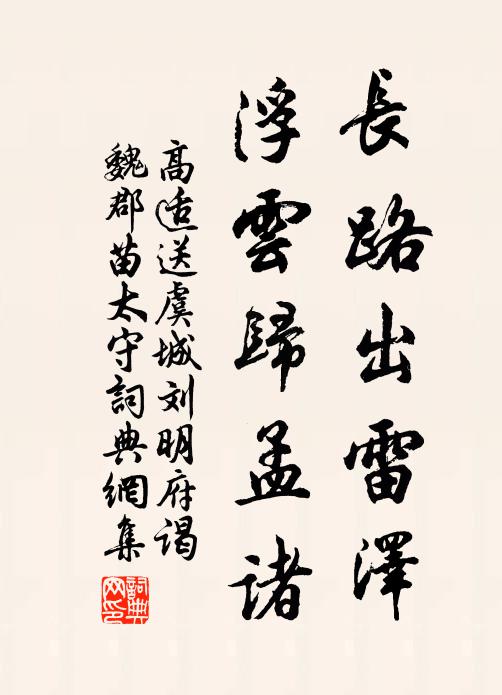 長路出雷澤
浮雲歸孟諸
高适送虞城刘明府謁
魏郡苗太守詞典網集
詞典網印